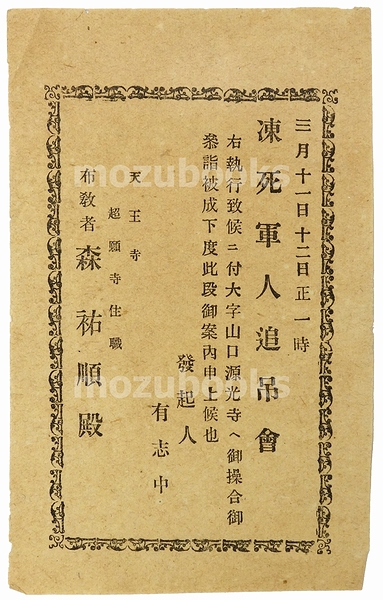 三月十一日十二日正一時
凍死軍人追吊會
右執行致候ニ付大字山口源光寺へ御操合御
叅詣被成下度此段御案內申上候也
發起人
有志中
天王寺
超願寺住職
布敎者 森祐順殿
mozubooks
mozubooks